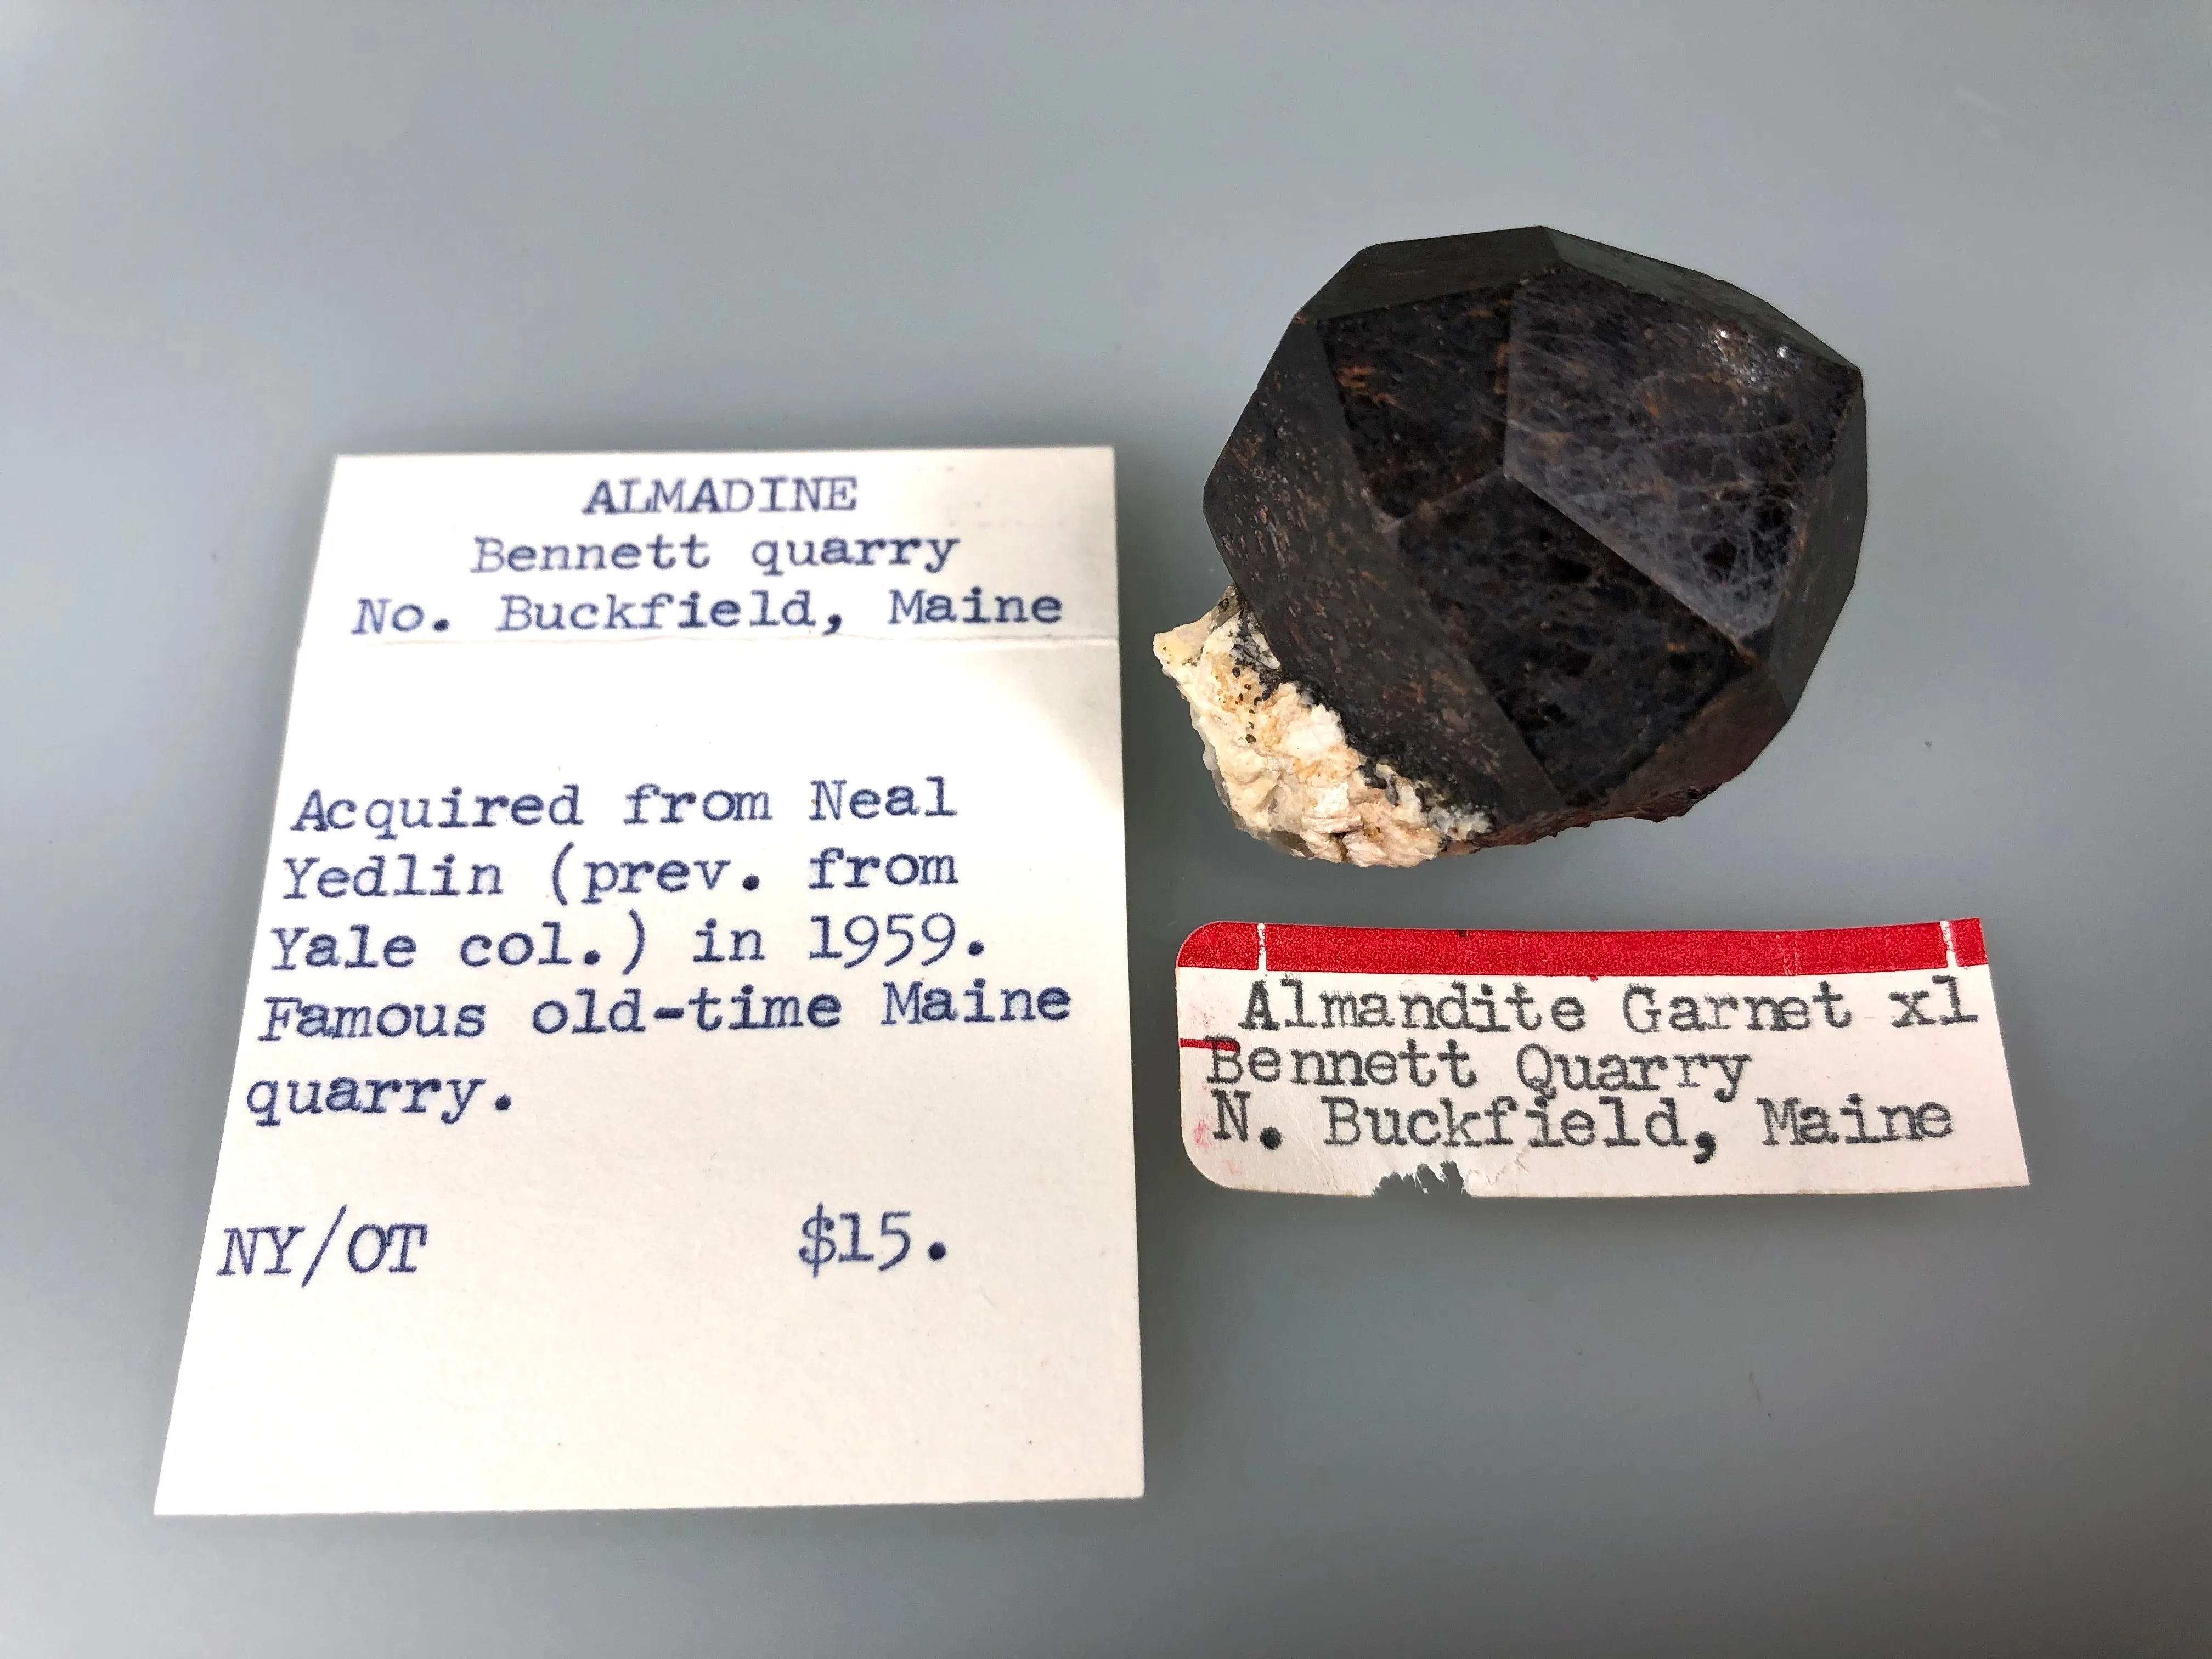 ALMADINE
Bennett quarry
No. Buckfield, Maine
Acquired from Neal
Yedlin (prev. from
Yale col.) in 1959.
Famous old-time Maine
quarry.
NY/OT $15.
Almandite Garnet xl
Bennett Quarry
N. Buckfield, Maine